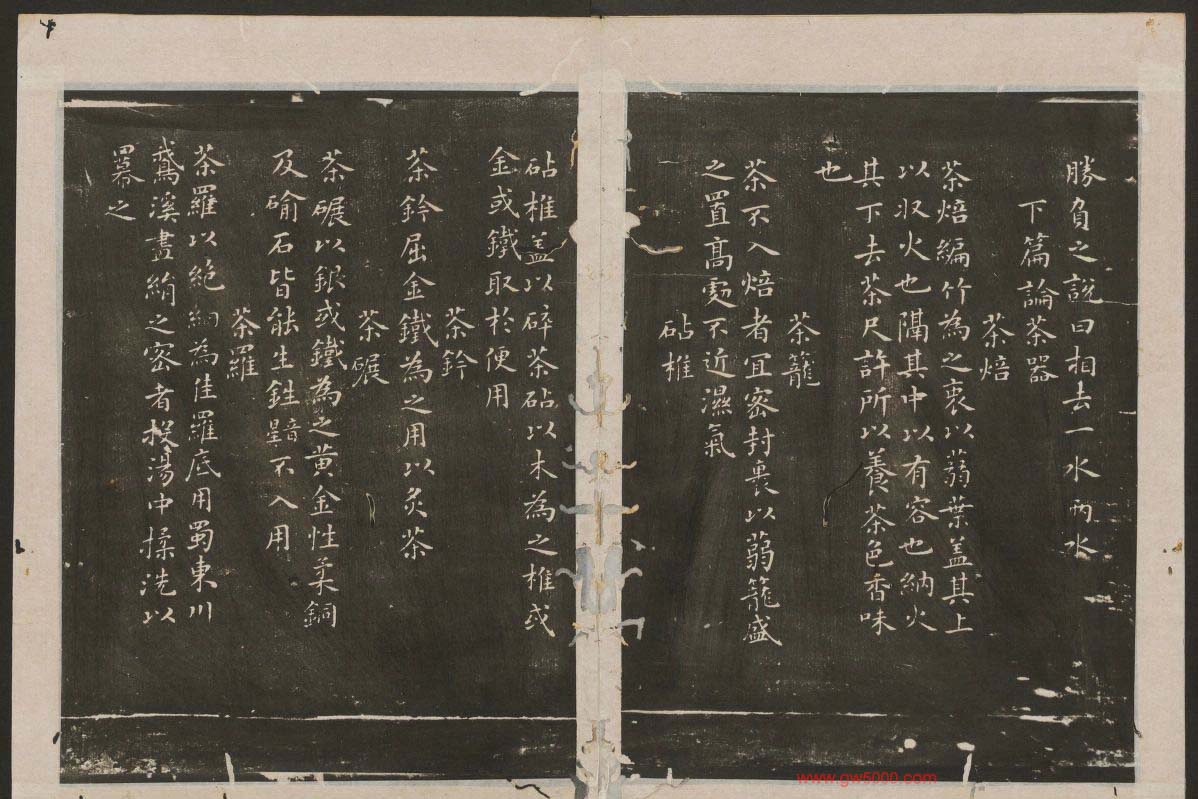 勝負之說曰相去一水兩水
下篇論茶器
茶焙
茶焙編竹為之裹以蒻葉盖其上
以収火也隔其中以有容也納火
其下去茶尺許所以養茶色香味
也
茶籠
茶不入焙者宜密封裹以蒻籠盛
之置高䖏不近濕氣
砧椎
砧椎盖以碎茶砧以木為之椎或
金或鐵取於便用
茶鈐
茶鈐屈金鐵為之用以炙茶
茶碾
茶碾以銀或鐵為之黄金性柔銅
及鍮石皆能生鉎不入用
茶羅
茶羅以絕細為佳羅底用蜀東川
鵞溪畫絹之密者投湯中揉洗以
羃之
www.gw5000.com